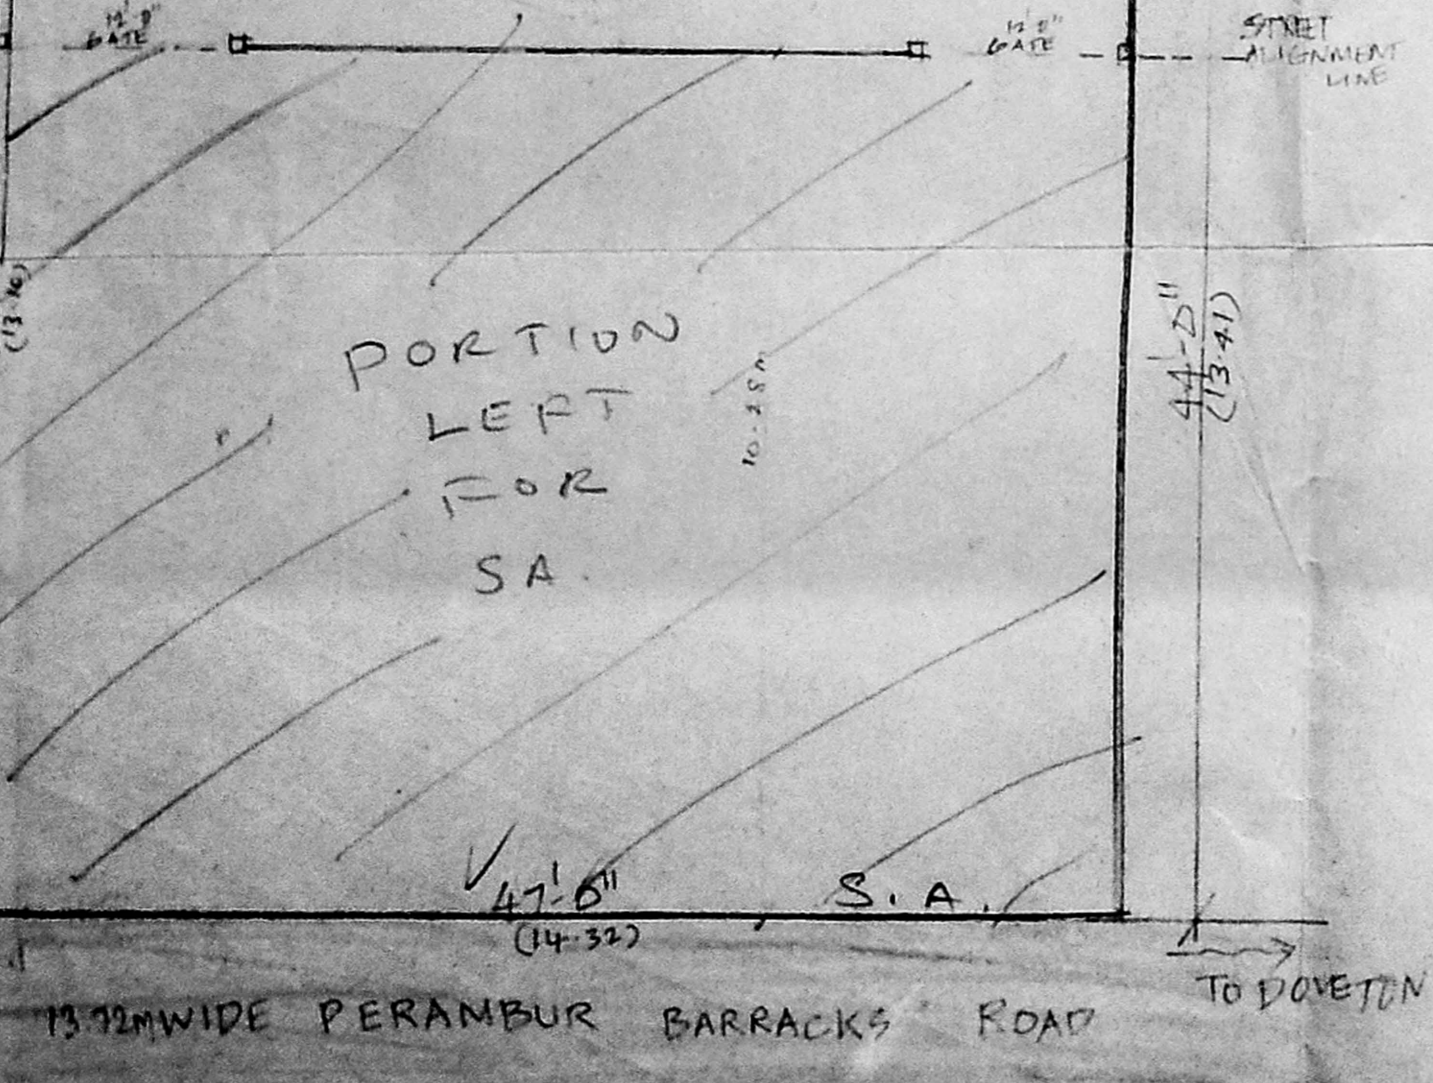 12'-0"
GATE
12'-0"
GATE
STREET
ALIGNMENT
LINE
PORTION
LEFT
FOR
SA.
10.28m
44'-0"
(13.41)
47'-0"
S.A.
(14.32)
TO DOVETON
13.72M WIDE PERAMBUR BARRACKS ROAD